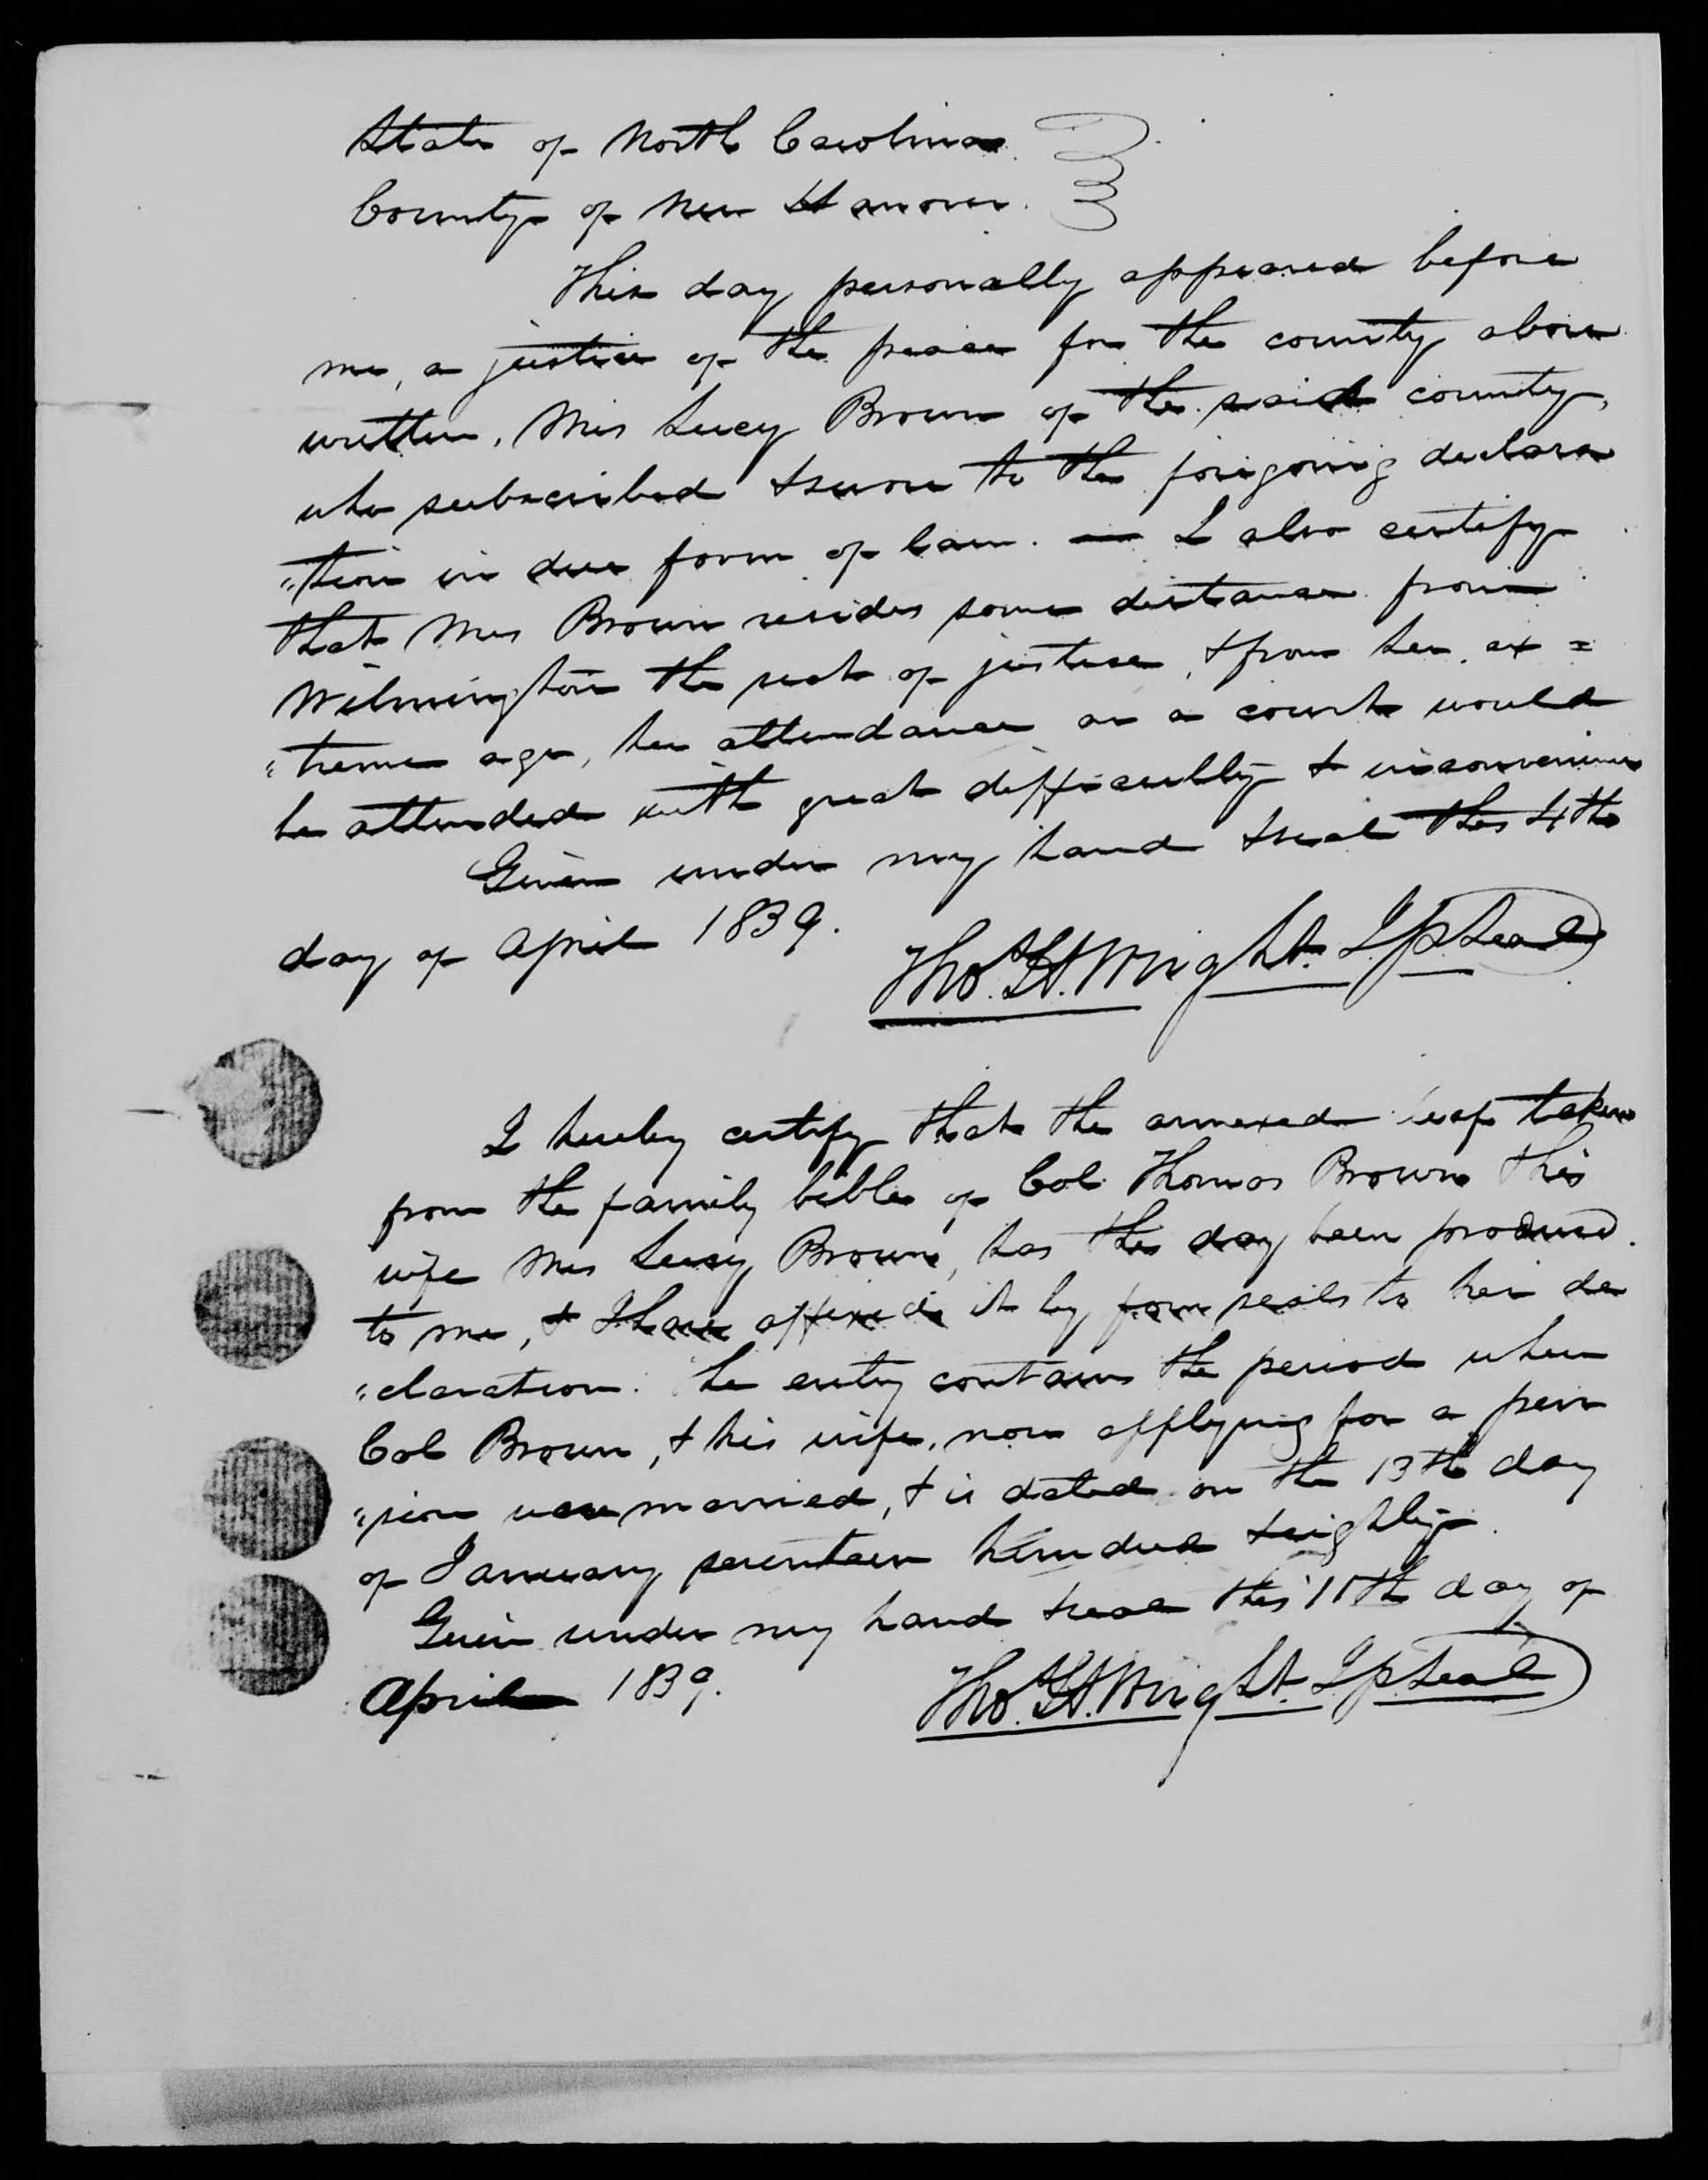 State of North Carolina
County of New Hanover.
This day personally appeared before
me, a justice of the peace for the county above
written, Mrs Lucy Brown of the said county,
who subscribed & swore to the foregoing declara
"tion in due form of law. — I also certify
that Mrs Brown resides some distance from
Wilmington the seat of justice, & from her ex =
"treme age, her attendance on a court would
be attended with great difficulty & inconvenience
Given under my hand & seal this 4th
day of April 1839.
Tho. H. Wright J P Seal
I hereby certify that the annexed leaf taken
from the family bible of Col Thomas Brown & his
wife Mrs Lucy Brown, has this day been produced
to me, & I have affixed it by four seals to her de
"claration. The entry contains the period when
Col Brown, & his wife, now applying for a pen
"sion were married, & is dated on the 13th day
of January seventeen hundred & eighty.
Given under my hand & seal this 11th day of
April 1839.
Tho. H. Wright J P Seal